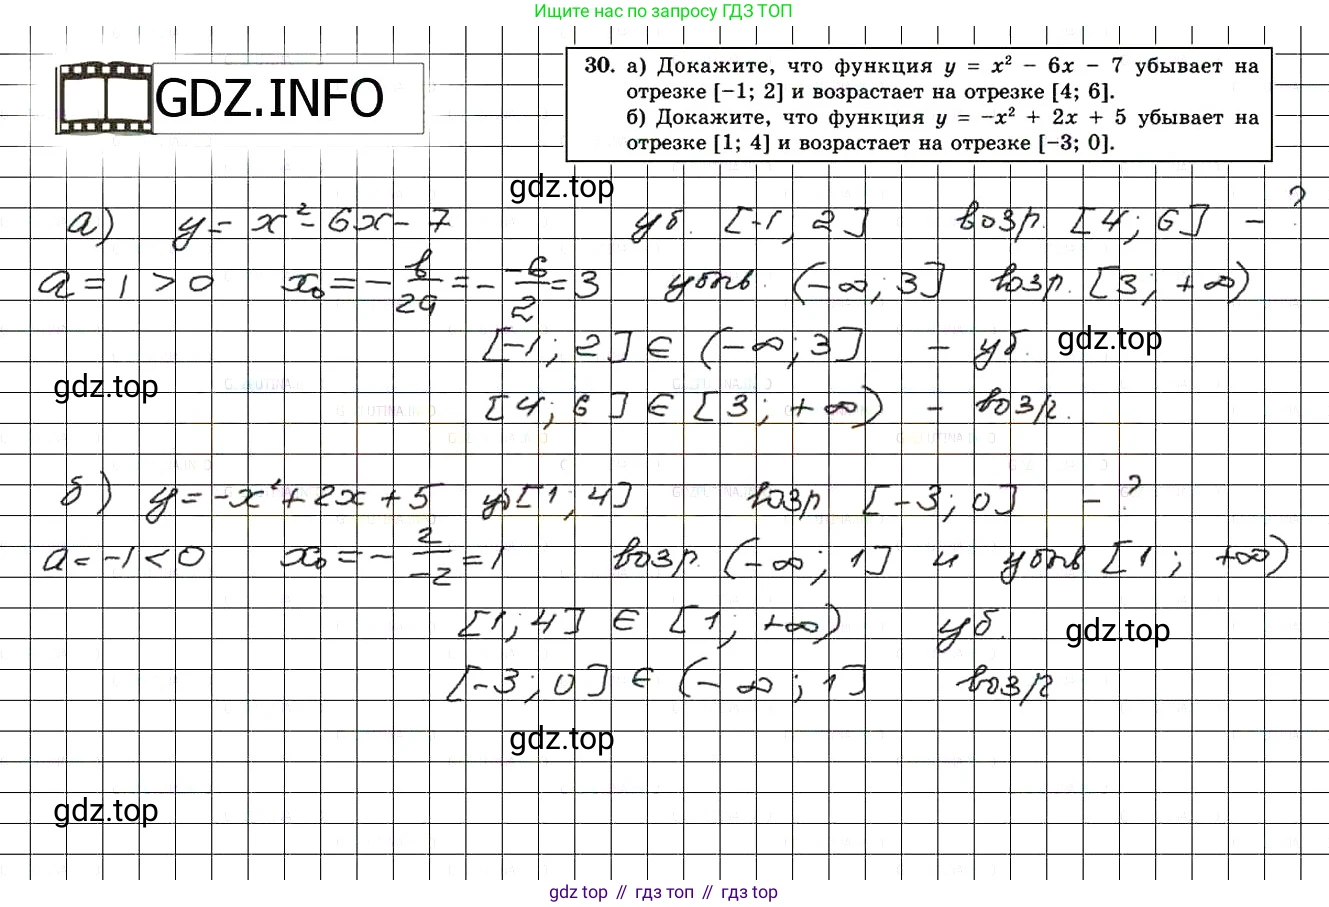 Ищите нас по запросу ГДЗ ТОП
GDZ.INFO
30. а) Докажите, что функция y = x² − 6x − 7 убывает на
отрезке [−1; 2] и возрастает на отрезке [4; 6].
б) Докажите, что функция y = −x² + 2x + 5 убывает на
отрезке [1; 4] и возрастает на отрезке [−3; 0].
gdz.top
а) y = x² - 6x - 7 уб. [-1, 2] возр. [4; 6] - ?
a = 1 > 0 x₀ = - b/2a = - -6/2 = 3 убыв. (-∞; 3] возр. [3; +∞)
[-1; 2] ∈ (-∞; 3] - уб. gdz.top
gdz.top
[4; 6] ∈ [3; +∞) - возр.
б) y = -x² + 2x + 5 уб [1, 4] возр [-3; 0] - ?
a = -1 < 0 x₀ = - 2/-2 = 1 возр. (-∞; 1] и убыв [1; +∞)
[1; 4] ∈ [1; +∞) уб. gdz.top
[-3; 0] ∈ (-∞; 1] возр
gdz.top
gdz.top
gdz top // гдз топ // гдз top